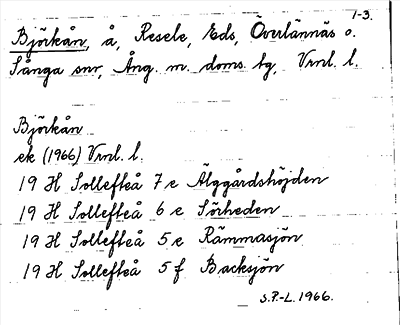 1-3.
Björkån, å, Resele, Eds, Överlännäs o.
Sånga snr, Ång. m. doms tg, Vrnl. l.
Björkån
ek (1966) Vrnl. l.
19 H Sollefteå 7 e Älggårdshöjden
19 H Sollefteå 6 e Sörheden
19 H Sollefteå 5 e Rämmasjön
19 H Sollefteå 5 f Backsjön
S.P.-L. 1966.